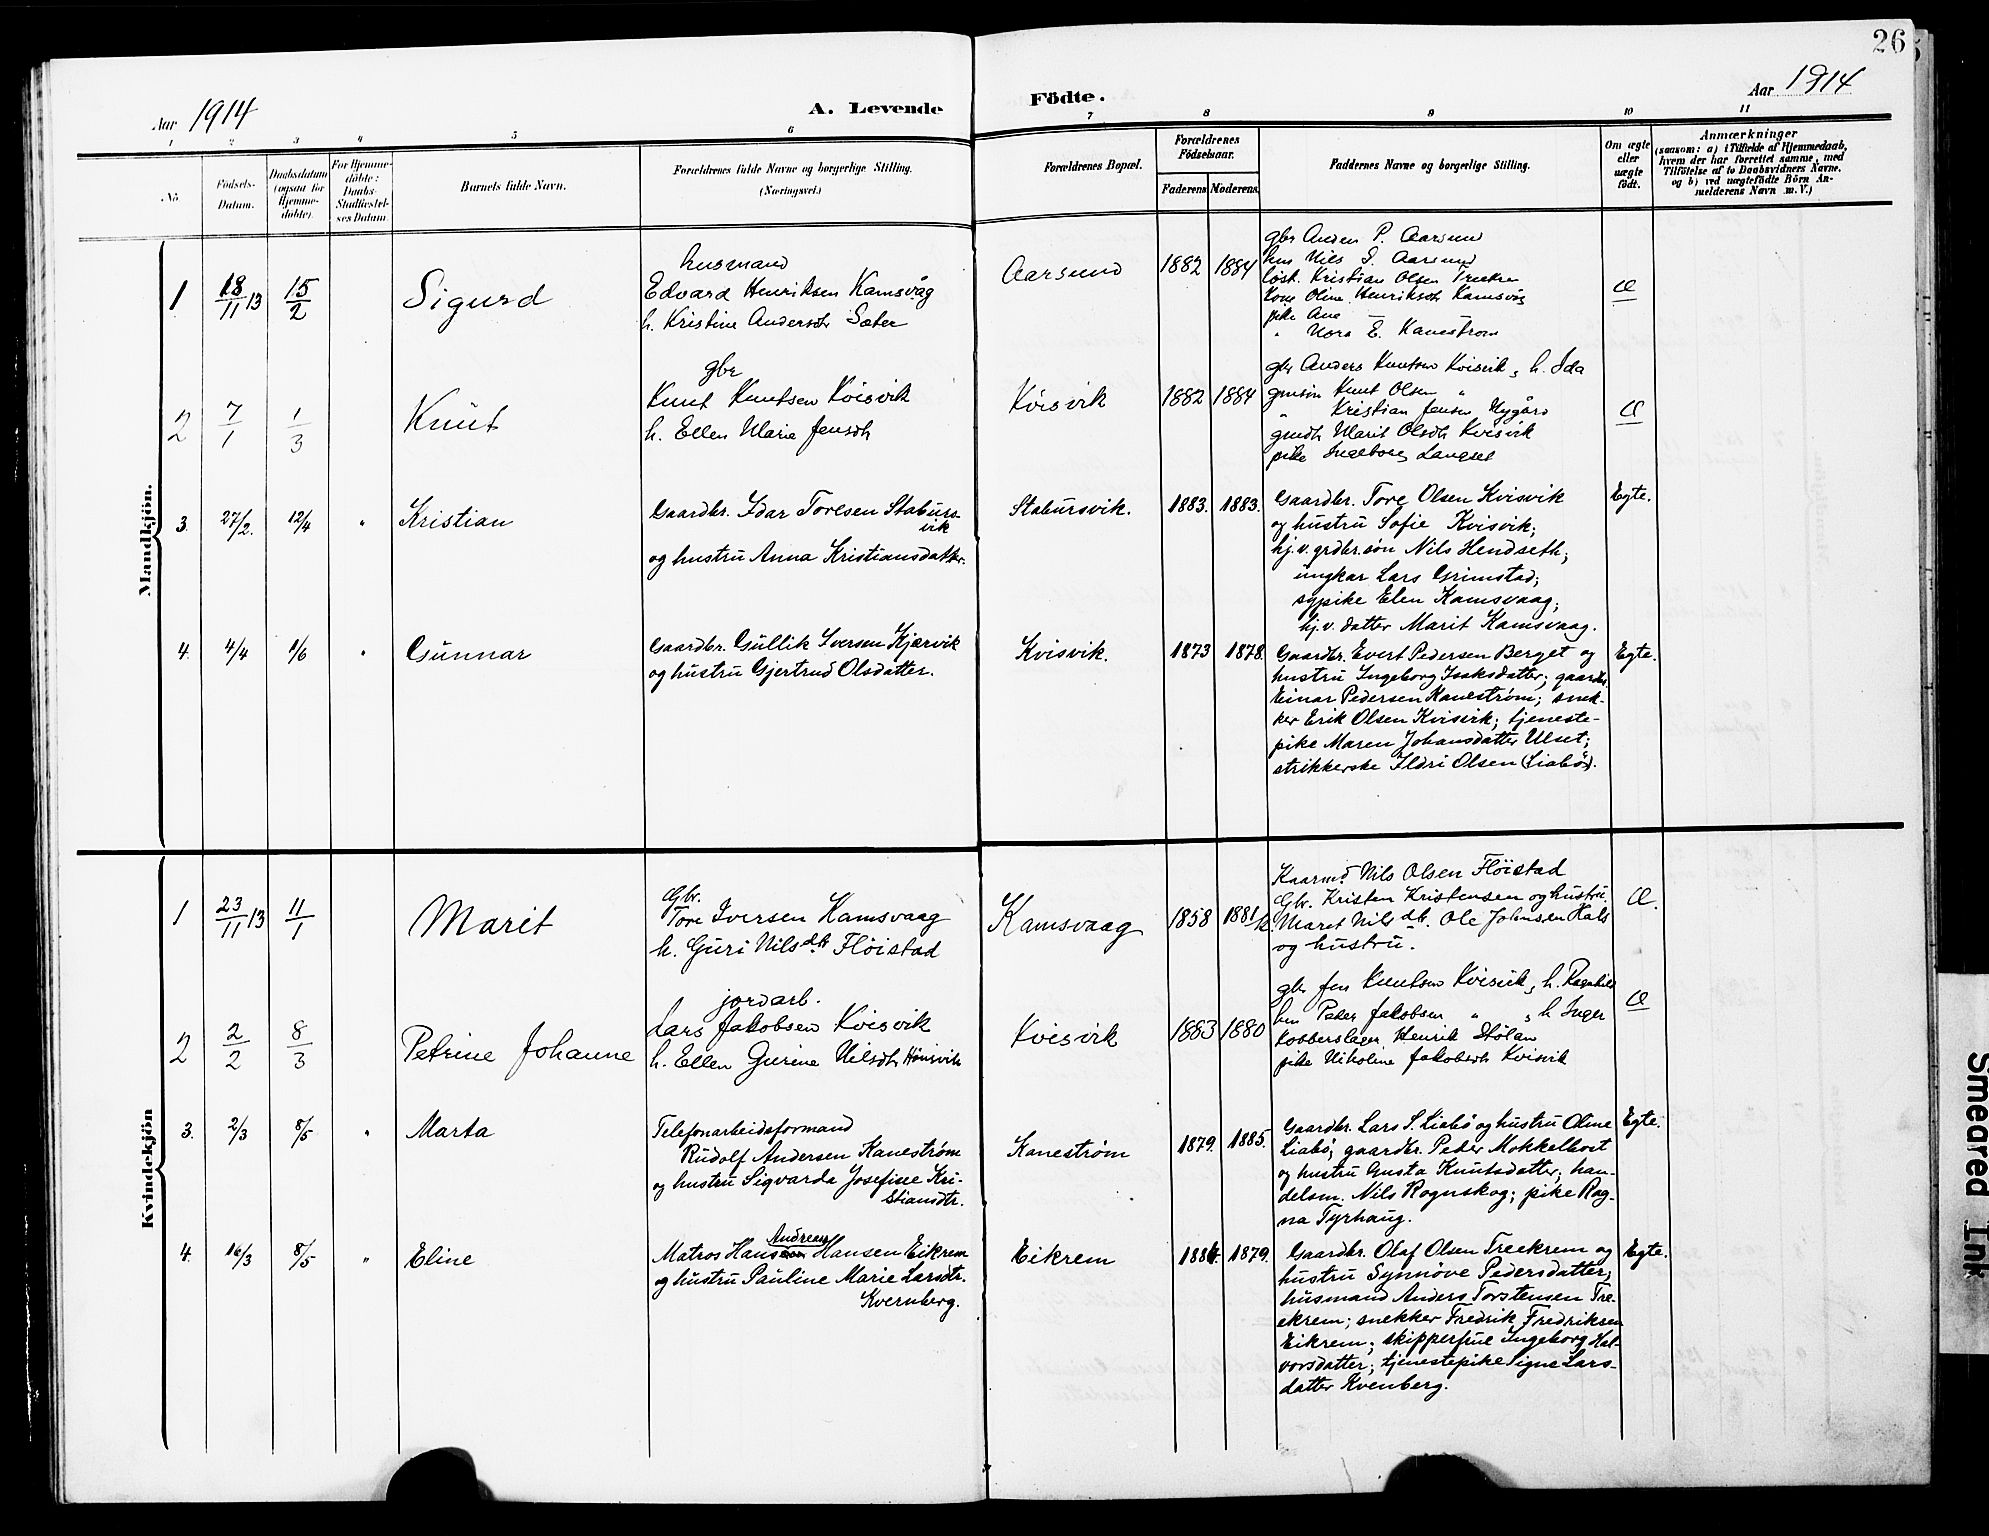 26
Aar 1914
A. Levende
Födte.
Aar 1914
1 2 3 4 5 6 7 8 9 10 11
No
Födsels-Datum.
Daabsdatum (ogsaa for Hjemmedöbte).
For Hjemmedöbte: Daabs-Stadfæstelses Datum.
Barnets fulde Navn.
Forældrenes fulde Navne og borgerlige Stilling.
(Næringsvei.)
Forældrenes Bopæl.
Forældrenes Födselsaar.
Faderens Moderens.
Faddernes Navne og borgerlige Stilling.
Om ægte eller uægte födt.
Anmærkninger
(saasom: a) i Tilfælde af Hjemmedaab,
hvem der har forrettet samme, med
Tilföielse af to Daabsvidners Navne,
og b) ved uægtefödte Börn An-
melderens Navn m. V.)
Mandkjön.
1 18/11 13 15/2 Sigurd
husmand
Edvard Henriksen Kamsvåg
h. Kristine Andersdtr Sæter
Aarsund 1882 1884
gbr Anders P. Aarsund
hm Nils S. Aarsund
løst. Kristian Olsen Treekrem
kone Oline Henriksdtr Kamsvåg
pike Ane —
" Nora E. Kanestrøm
Æ
2 7/1 1/3 Knut
gbr
Knut Knutsen Kvisvik
h. Ellen Marie Jensdtr
Kvisvik 1882 1884
gbr Anders Knutsen Kvisvik, h. Ida
gmsøn Knut Olsen "
" Kristian Jensen Nygård
gmdtr Marit Olsdtr Kvisvik
pike Ingeborg Langset
Æ
3. 27/2. 12/4 " Kristian
Gaardbr. Idar Toresen Stabursvik
og hustru Anna Kristiansdatter.
Stabursvik. 1883. 1883.
Gaardbr. Tore Olsen Kvisvik
og hustru Sofie Kvisvik;
hj.v. grdbr.søn Nils Hendseth;
ungkar Lars Grimstad;
sypike Elen Kamsvaag;
hj.v. datter Marit Kamsvaag.
Egte.
4. 4/4 1/6 " Gunnar
Gaardbr. Gullik Iversen Kjærvik
og hustru Gjertrud Olsdatter.
Kvisvik. 1873 1878.
Gaardbr. Evert Pedersen Berget og
hustru Ingeborg Isaksdatter; gaardbr.
Einar Pedersen Kanestrøm; snek-
ker Erik Olsen Kvisvik; tjeneste-
pike Maren Johansdatter Ulset;
strikkerske Ildri Olsen (Liabø).
Egte.
Kvindekjön
1 23/11 13 11/1 Marit
Gbr.
Tore Iversen Kamsvaag
h. Guri Nilsdtr Fløistad
Kamsvaag 1858 1881
Kaarmd Nils Olsen Fløistad
Gbr. Kristen Kristensen og hustru
Maret Nilsdtr. Ole Johnsen Hals
og hustru.
Æ.
2 2/2 8/3 Petrine Johanne
jordarb.
Lars Jakobsen Kvisvik
h. Ellen Gurine Nilsdtr Hønsvik
Kvisvik 1883 1880
gbr Jens Knutsen Kvisvik, h. Ragnhild
hm Peder Jakobsen " , h Inger
Kobberslager Henrik Stølan
pike Nikoline Jakobsdtr Kvisvik
Æ
3. 2/3 8/5 " Marta
Telefonarbeidsformand
Rudolf Andersen Kanestrøm
og hustru Sigvarda Josefine Kri-
stiansdtr.
Kanestrøm 1879. 1885.
Gaardbr. Lars S. Liabø og hustru Oline
Liabø; gaardbr. Peder Mokkelbost
og hustru Gusta Knutsdatter; han-
delsm. Nils Rognskog; pike Rag-
na Tyrhaug.
Egte.
4. 16/3 8/5 " Eline
Andreas
Matros Hans Hansen Eikrem
og hustru Pauline Marie Larsdtr.
Kvernberg.
Eikrem 1884. 1879.
Gaardbr. Olaf Olsen Treekrem og
hustru Synnøve Pedersdatter;
husmand Anders Torstensen Tre-
ekrem; snekker Fredrik Fredriksen
Eikrem; skipperfrue Ingeborg Hal-
vorsdatter; tjenestepike Signe Lars-
datter Kvenberg.
Egte.
Smeared Ink